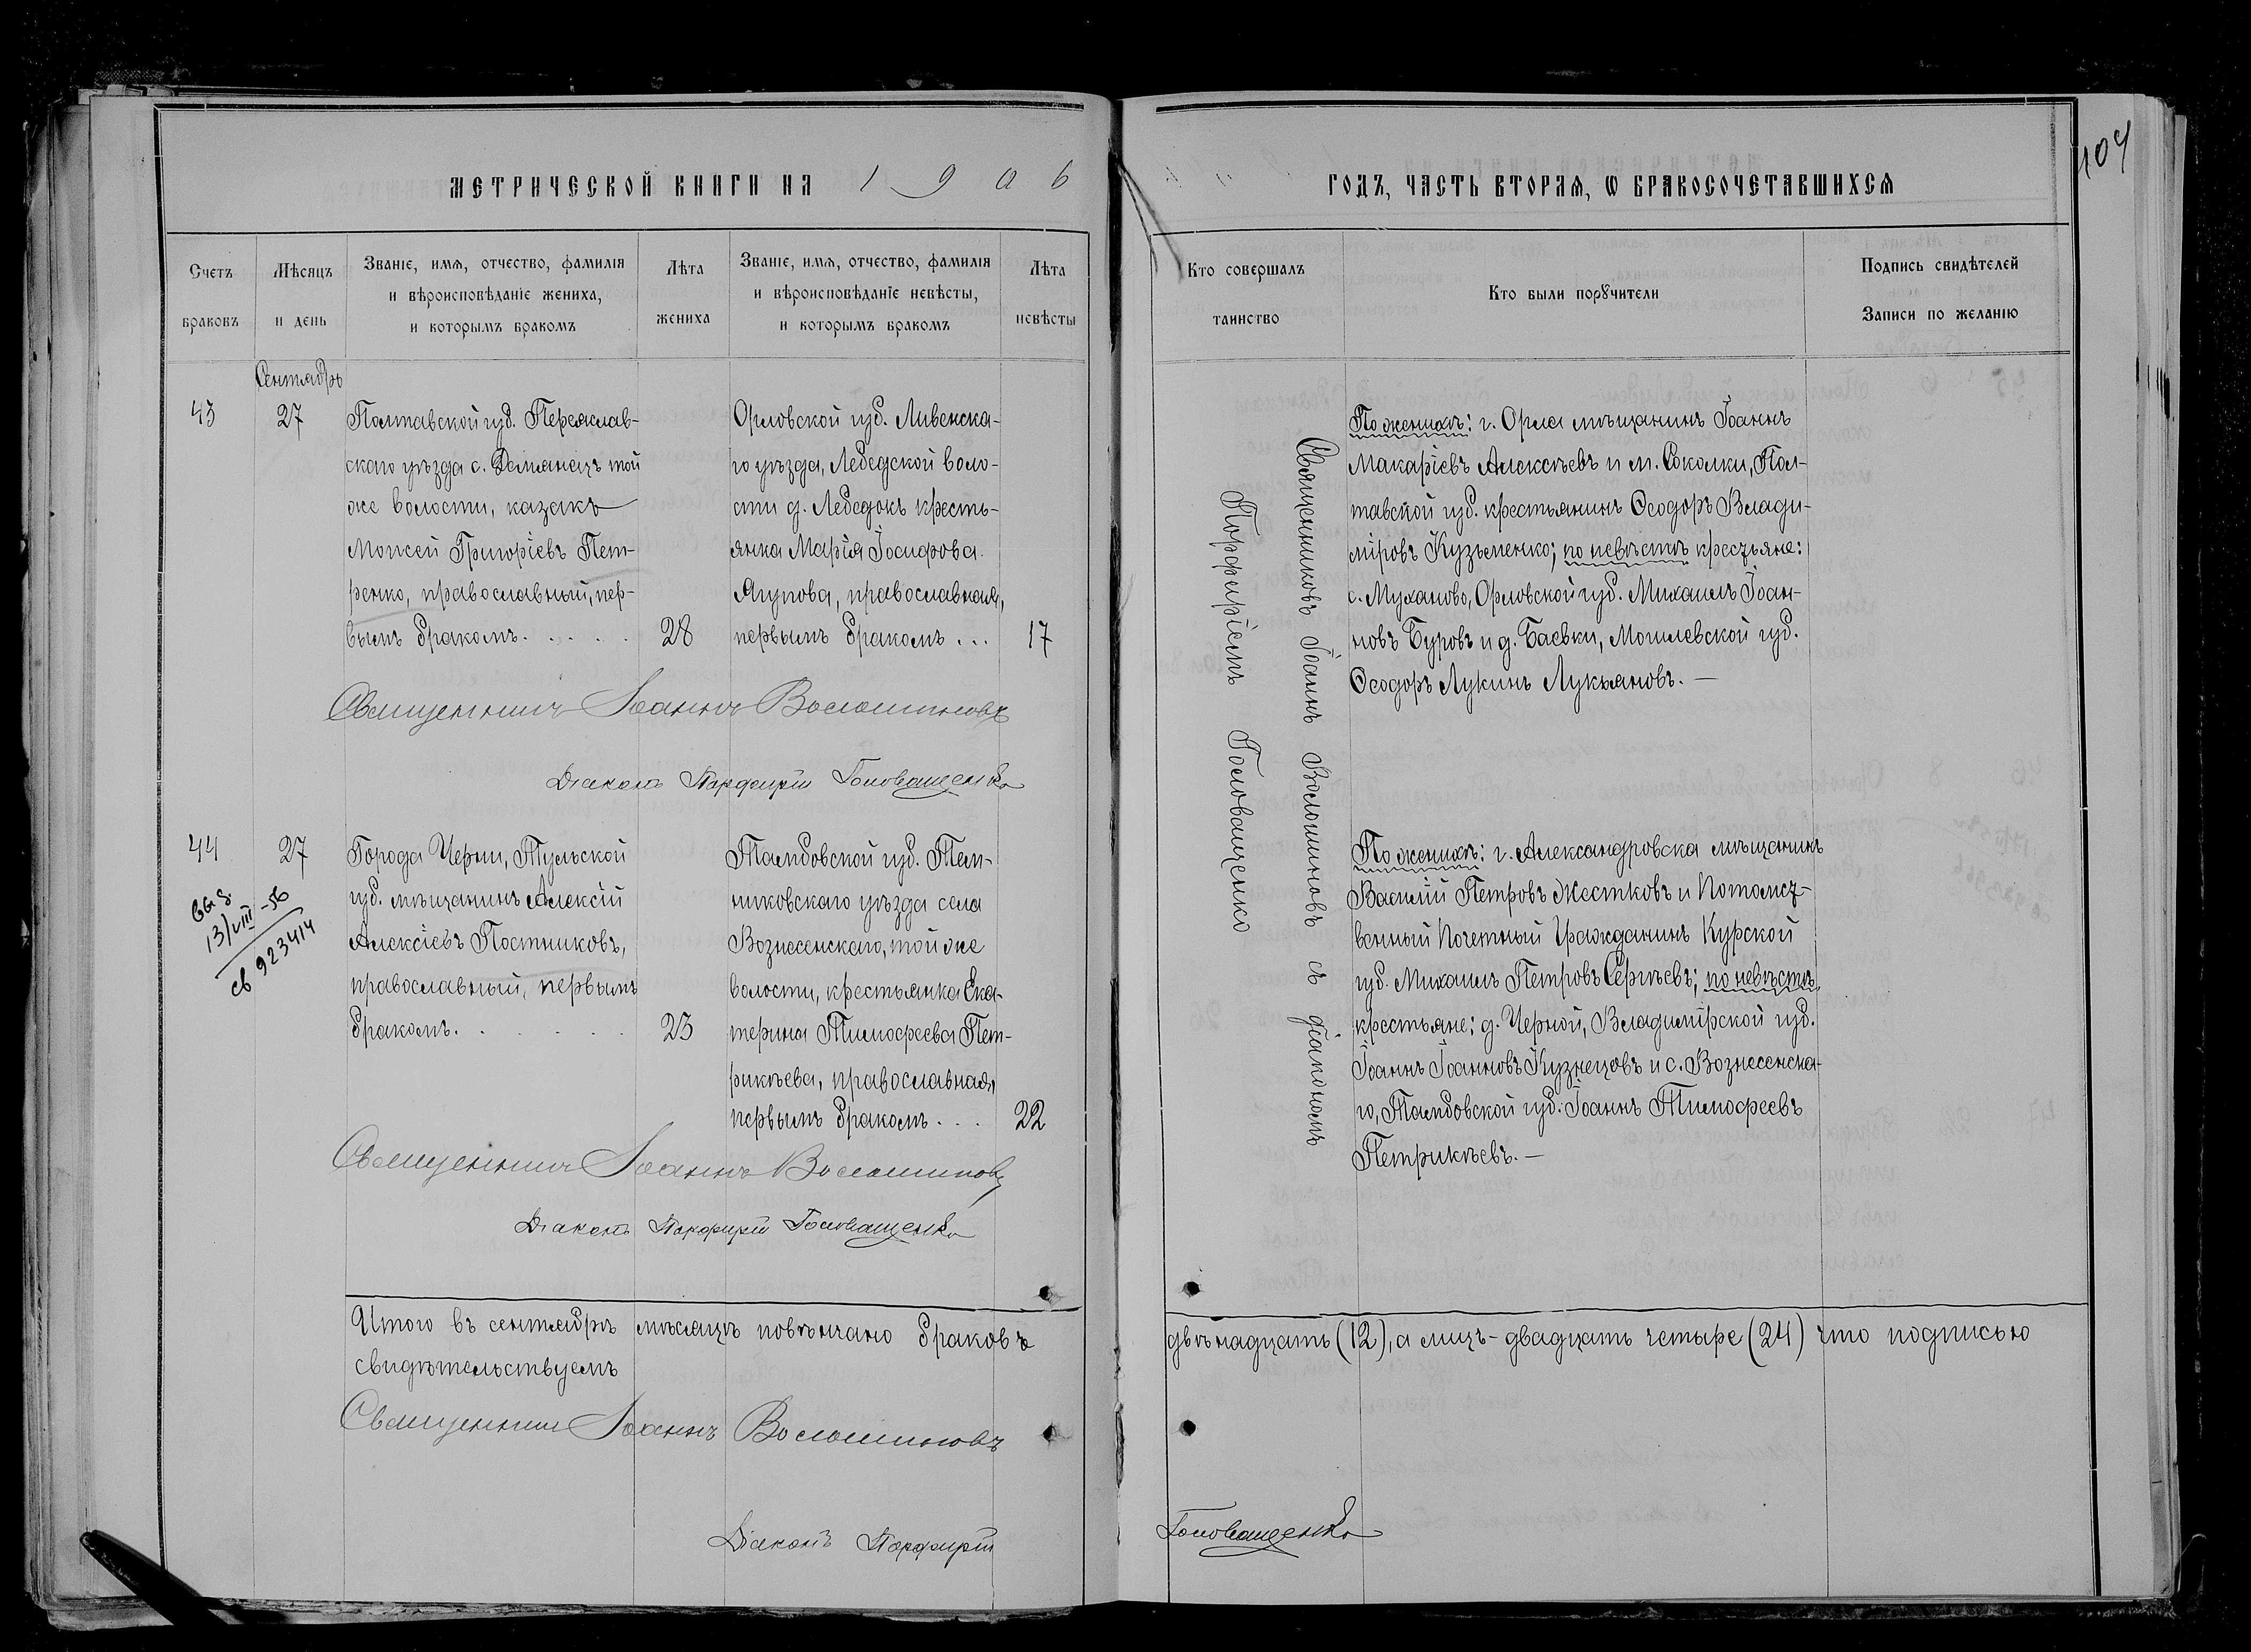 МЕТРИЧЕСКОЙ КНИГИ НА 1906
ГОДЪ, ЧАСТЬ ВТОРАѦ, Ѡ БРАКОСОЧЕТАВШИХСѦ
104
Счетъ
браковъ
Мѣсяцъ
и день
Званіе, имѧ, отчество, фамилія
и вѣроисповѣданіе жениха,
и которымъ бракомъ
Лѣта
жениха
Званіе, имѧ, отчество, фамилія
и вѣроисповѣданіе невѣсты,
и которымъ бракомъ
Лѣта
невѣсты
Кто совершалъ
таинство
Кто были порꙋчители
Подпись свидѣтелей
Записи по желанію
Сентябрь
43
27
Полтавской губ. Переяслав-
скаго уѣзда с. Демянецъ той
же волости, казакъ
Моисей Григоріевъ Пет-
ренко, православный, пер-
вымъ бракомъ. . . . .
28
Орловской губ. Ливенска-
го уѣзда, Лебедской воло-
сти д. Лебедокъ кресть-
янка Марія Іосифова
Ягупова, православная,
первымъ бракомъ . . .
17
Священникъ Іоаннъ Волошиновъ
Діаконъ Порфирій Головащенко
Священникъ Іоаннъ Волошиновъ съ діакономъ
Порфиріемъ Головащенко
По женихѣ: г. Орла мѣщанинъ Іоаннъ
Макаріевъ Алексѣевъ и м. Соколки, Пол-
тавской губ. крестьянинъ Ѳеодоръ Влади-
міровъ Кузьменко; по невѣстѣ крестьяне:
с. Муханово, Орловской губ. Михаилъ Іоан-
новъ Буровъ и д. Баевки, Могилевской губ.
Ѳеодоръ Лукинъ Лукьяновъ. —
44
27
выд.
13/VIII-56
св 923414
Города Черни, Тульской
губ. мѣщанинъ Алексій
Алексіевъ Постниковъ,
православный, первымъ
бракомъ. . . . . .
23
Тамбовской губ. Тем-
никовскаго уѣзда села
Вознесенскаго, той же
волости, крестьянка Ека-
терина Тимофеева Пет-
рикѣева, православная,
первымъ бракомъ. . .
22
Священникъ Іоаннъ Волошиновъ
Діаконъ Порфирій Головащенко
По женихѣ: г. Александровска мѣщанинъ
Василій Петровъ Жестковъ и Потомст-
венный Почетный Гражданинъ Курской
губ. Михаилъ Петровъ Сергѣевъ; по невѣстѣ
крестьяне: д. Черной, Владимірской губ.
Іоаннъ Іоанновъ Кузнецовъ и с. Вознесенска-
го, Тамбовской губ. Іоаннъ Тимофеевъ
Петрикѣевъ. —
Итого въ сентябрѣ мѣсяцѣ повѣнчано браковъ двѣнадцать (12), а лицъ - двадцать четыре (24) что подписью
свидѣтельствуемъ
Священникъ Іоаннъ Волошиновъ
Діаконъ Порфирій Головащенко